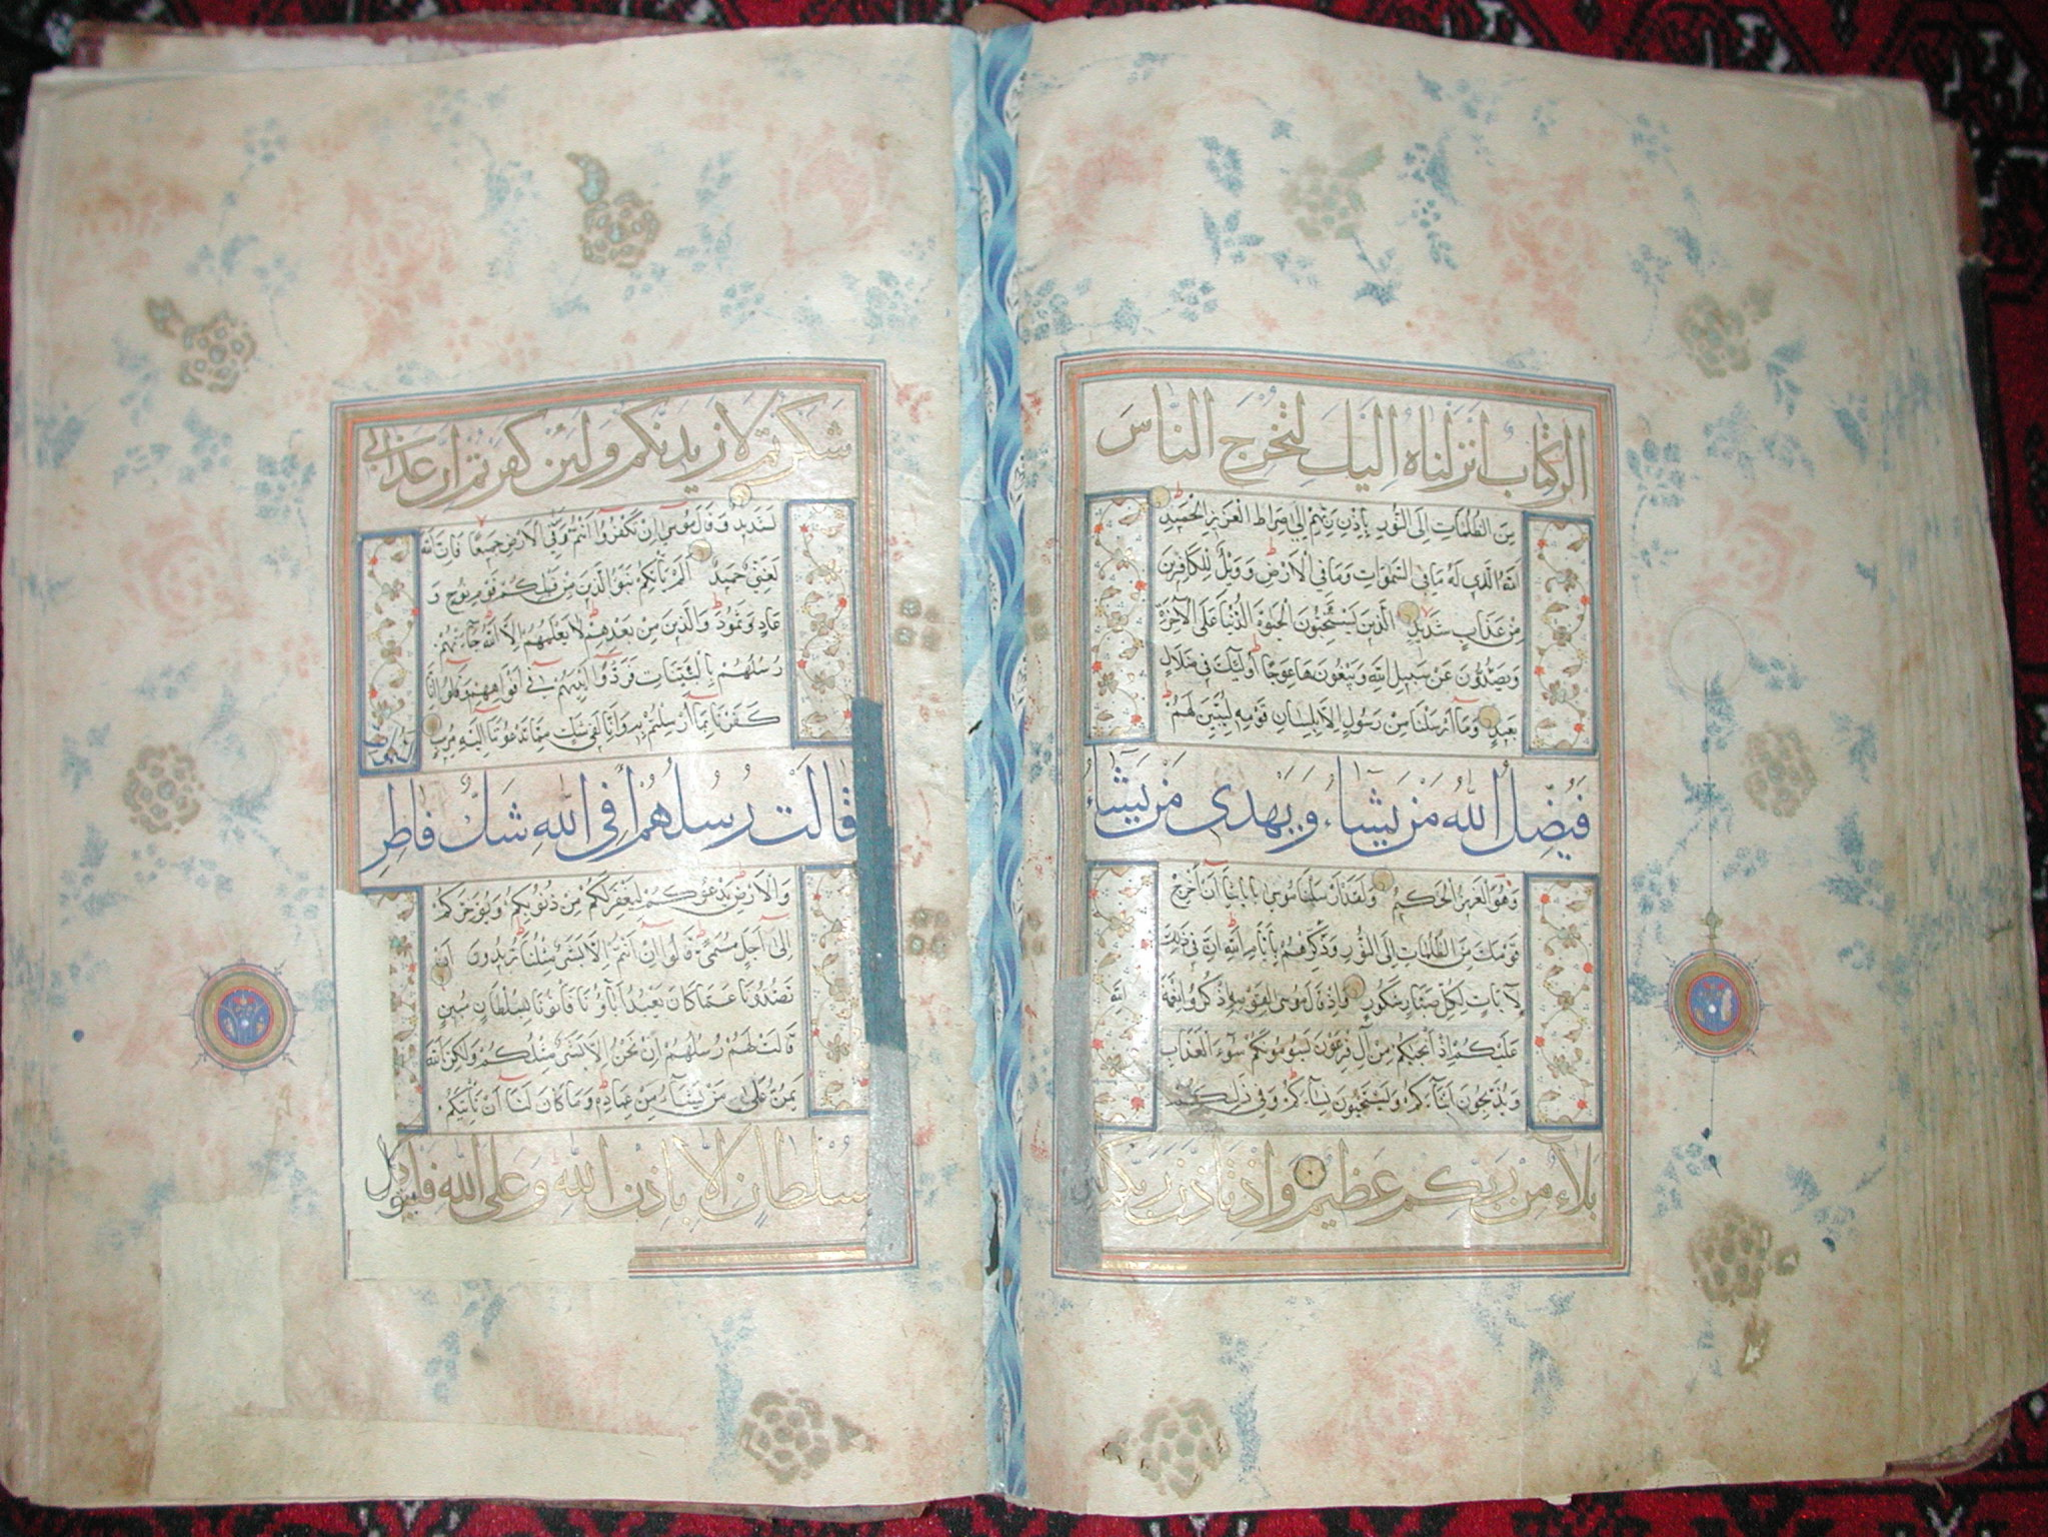 الر كتاب انزلناه اليك لتخرج الناس
مِنَ الظُّلُمَاتِ اِلَى النُّورِ بِاِذْنِ رَبِّهِمْ اِلٰى صِرَاطِ الْعَزِيزِ الْحَمِيدِ
اَللهِ الَّذِي لَهُ مَا فِي السَّمٰوَاتِ وَمَا فِي الْاَرْضِ وَوَيْلٌ لِلْكَافِرِينَ
مِنْ عَذَابٍ شَدِيدٍ الَّذِينَ يَسْتَحِبُّونَ الْحَيٰوةَ الدُّنْيَا عَلَى الْآخِرَةِ
وَيَصُدُّونَ عَنْ سَبِيلِ اللهِ وَيَبْغُونَهَا عِوَجًا اُولٰئِكَ فِي ضَلَالٍ
بَعِيدٍ وَمَا اَرْسَلْنَا مِنْ رَسُولٍ اِلَّا بِلِسَانِ قَوْمِهِ لِيُبَيِّنَ لَهُمْ
فَيُضِلُّ اللهُ مَنْ يَشَاءُ وَيَهْدِي مَنْ يَشَاءُ
وَهُوَ الْعَزِيزُ الْحَكِيمُ وَلَقَدْ اَرْسَلْنَا مُوسٰى بِاٰيَاتِنَا اَنْ اَخْرِجْ
قَوْمَكَ مِنَ الظُّلُمَاتِ اِلَى النُّورِ وَذَكِّرْهُمْ بِاَيَّامِ اللهِ اِنَّ فِي ذٰلِكَ
لَآيَاتٍ لِكُلِّ صَبَّارٍ شَكُورٍ وَاِذْ قَالَ مُوسٰى لِقَوْمِهِ اذْكُرُوا نِعْمَةَ الله
عَلَيْكُمْ اِذْ اَنْجٰيكُمْ مِنْ اٰلِ فِرْعَوْنَ يَسُومُونَكُمْ سُوءَ الْعَذَابِ
وَيُذَبِّحُونَ اَبْنَاءَكُمْ وَيَسْتَحْيُونَ نِسَاءَكُمْ وَفِي ذٰلِكُمْ
بَلَاءٌ مِنْ رَبِّكُمْ عَظِيمٌ وَاِذْ تَاَذَّنَ رَبُّكُمْ لَئِنْ
شَكَرْتُمْ لَاَزِيدَنَّكُمْ وَلَئِنْ كَفَرْتُمْ اِنَّ عَذَابِي
لَشَدِيدٌ وَقَالَ مُوسٰى اِنْ تَكْفُرُوا اَنْتُمْ وَمَنْ فِي الْاَرْضِ جَمِيعًا فَاِنَّ اللهَ
لَغَنِيٌّ حَمِيدٌ اَلَمْ يَأْتِكُمْ نَبَؤُا الَّذِينَ مِنْ قَبْلِكُمْ قَوْمِ نُوحٍ وَ
عَادٍ وَثَمُودَ وَالَّذِينَ مِنْ بَعْدِهِمْ لَا يَعْلَمُهُمْ اِلَّا اللهُ جَاءَتْهُمْ
رُسُلُهُمْ بِالْبَيِّنَاتِ فَرَدُّوا اَيْدِيَهُمْ فِي اَفْوَاهِهِمْ وَقَالُوا اِنَّا
كَفَرْنَا بِمَا اُرْسِلْتُمْ بِهِ وَاِنَّا لَفِي شَكٍّ مِمَّا تَدْعُونَنَا اِلَيْهِ مُرِيبٍ
قَالَتْ رُسُلُهُمْ اَفِي اللهِ شَكٌّ فَاطِرِ السَّمٰوَاتِ
وَالْاَرْضِ يَدْعُوكُمْ لِيَغْفِرَ لَكُمْ مِنْ ذُنُوبِكُمْ وَيُؤَخِّرَكُمْ
اِلٰى اَجَلٍ مُسَمًّى قَالُوا اِنْ اَنْتُمْ اِلَّا بَشَرٌ مِثْلُنَا تُرِيدُونَ اَنْ
تَصُدُّونَا عَمَّا كَانَ يَعْبُدُ اٰبَاؤُنَا فَأْتُونَا بِسُلْطَانٍ مُبِينٍ
قَالَتْ لَهُمْ رُسُلُهُمْ اِنْ نَحْنُ اِلَّا بَشَرٌ مِثْلُكُمْ وَلٰكِنَّ اللهَ
يَمُنُّ عَلٰى مَنْ يَشَاءُ مِنْ عِبَادِهِ وَمَا كَانَ لَنَا اَنْ نَأْتِيَكُمْ
بِسُلْطَانٍ اِلَّا بِاِذْنِ اللهِ وَعَلَى اللهِ فَلْيَتَوَكَّلِ